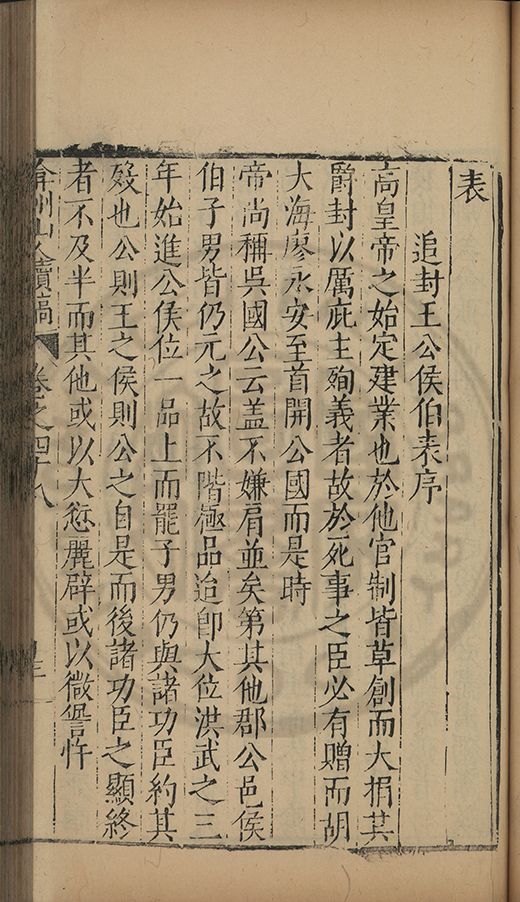 表
追封王公侯伯表序
高皇帝之始定建業也於他官制皆草創而大捐其
爵封以厲庇主殉義者故於死事之臣必有贈而胡
大海廖永安至首開公國而是時
帝尚稱吳國公云盖不嫌肩並矣第其他郡公邑侯
伯子男皆仍元之故不階極品迨即大位洪武之三
年始進公侯位一品上而罷子男仍與諸功臣約其
殁也公則王之侯則公之自是而後諸功臣之顯終
者不及半而其他或以大愆麗辟或以微眚忤
弇州山人續稿 卷之四十八